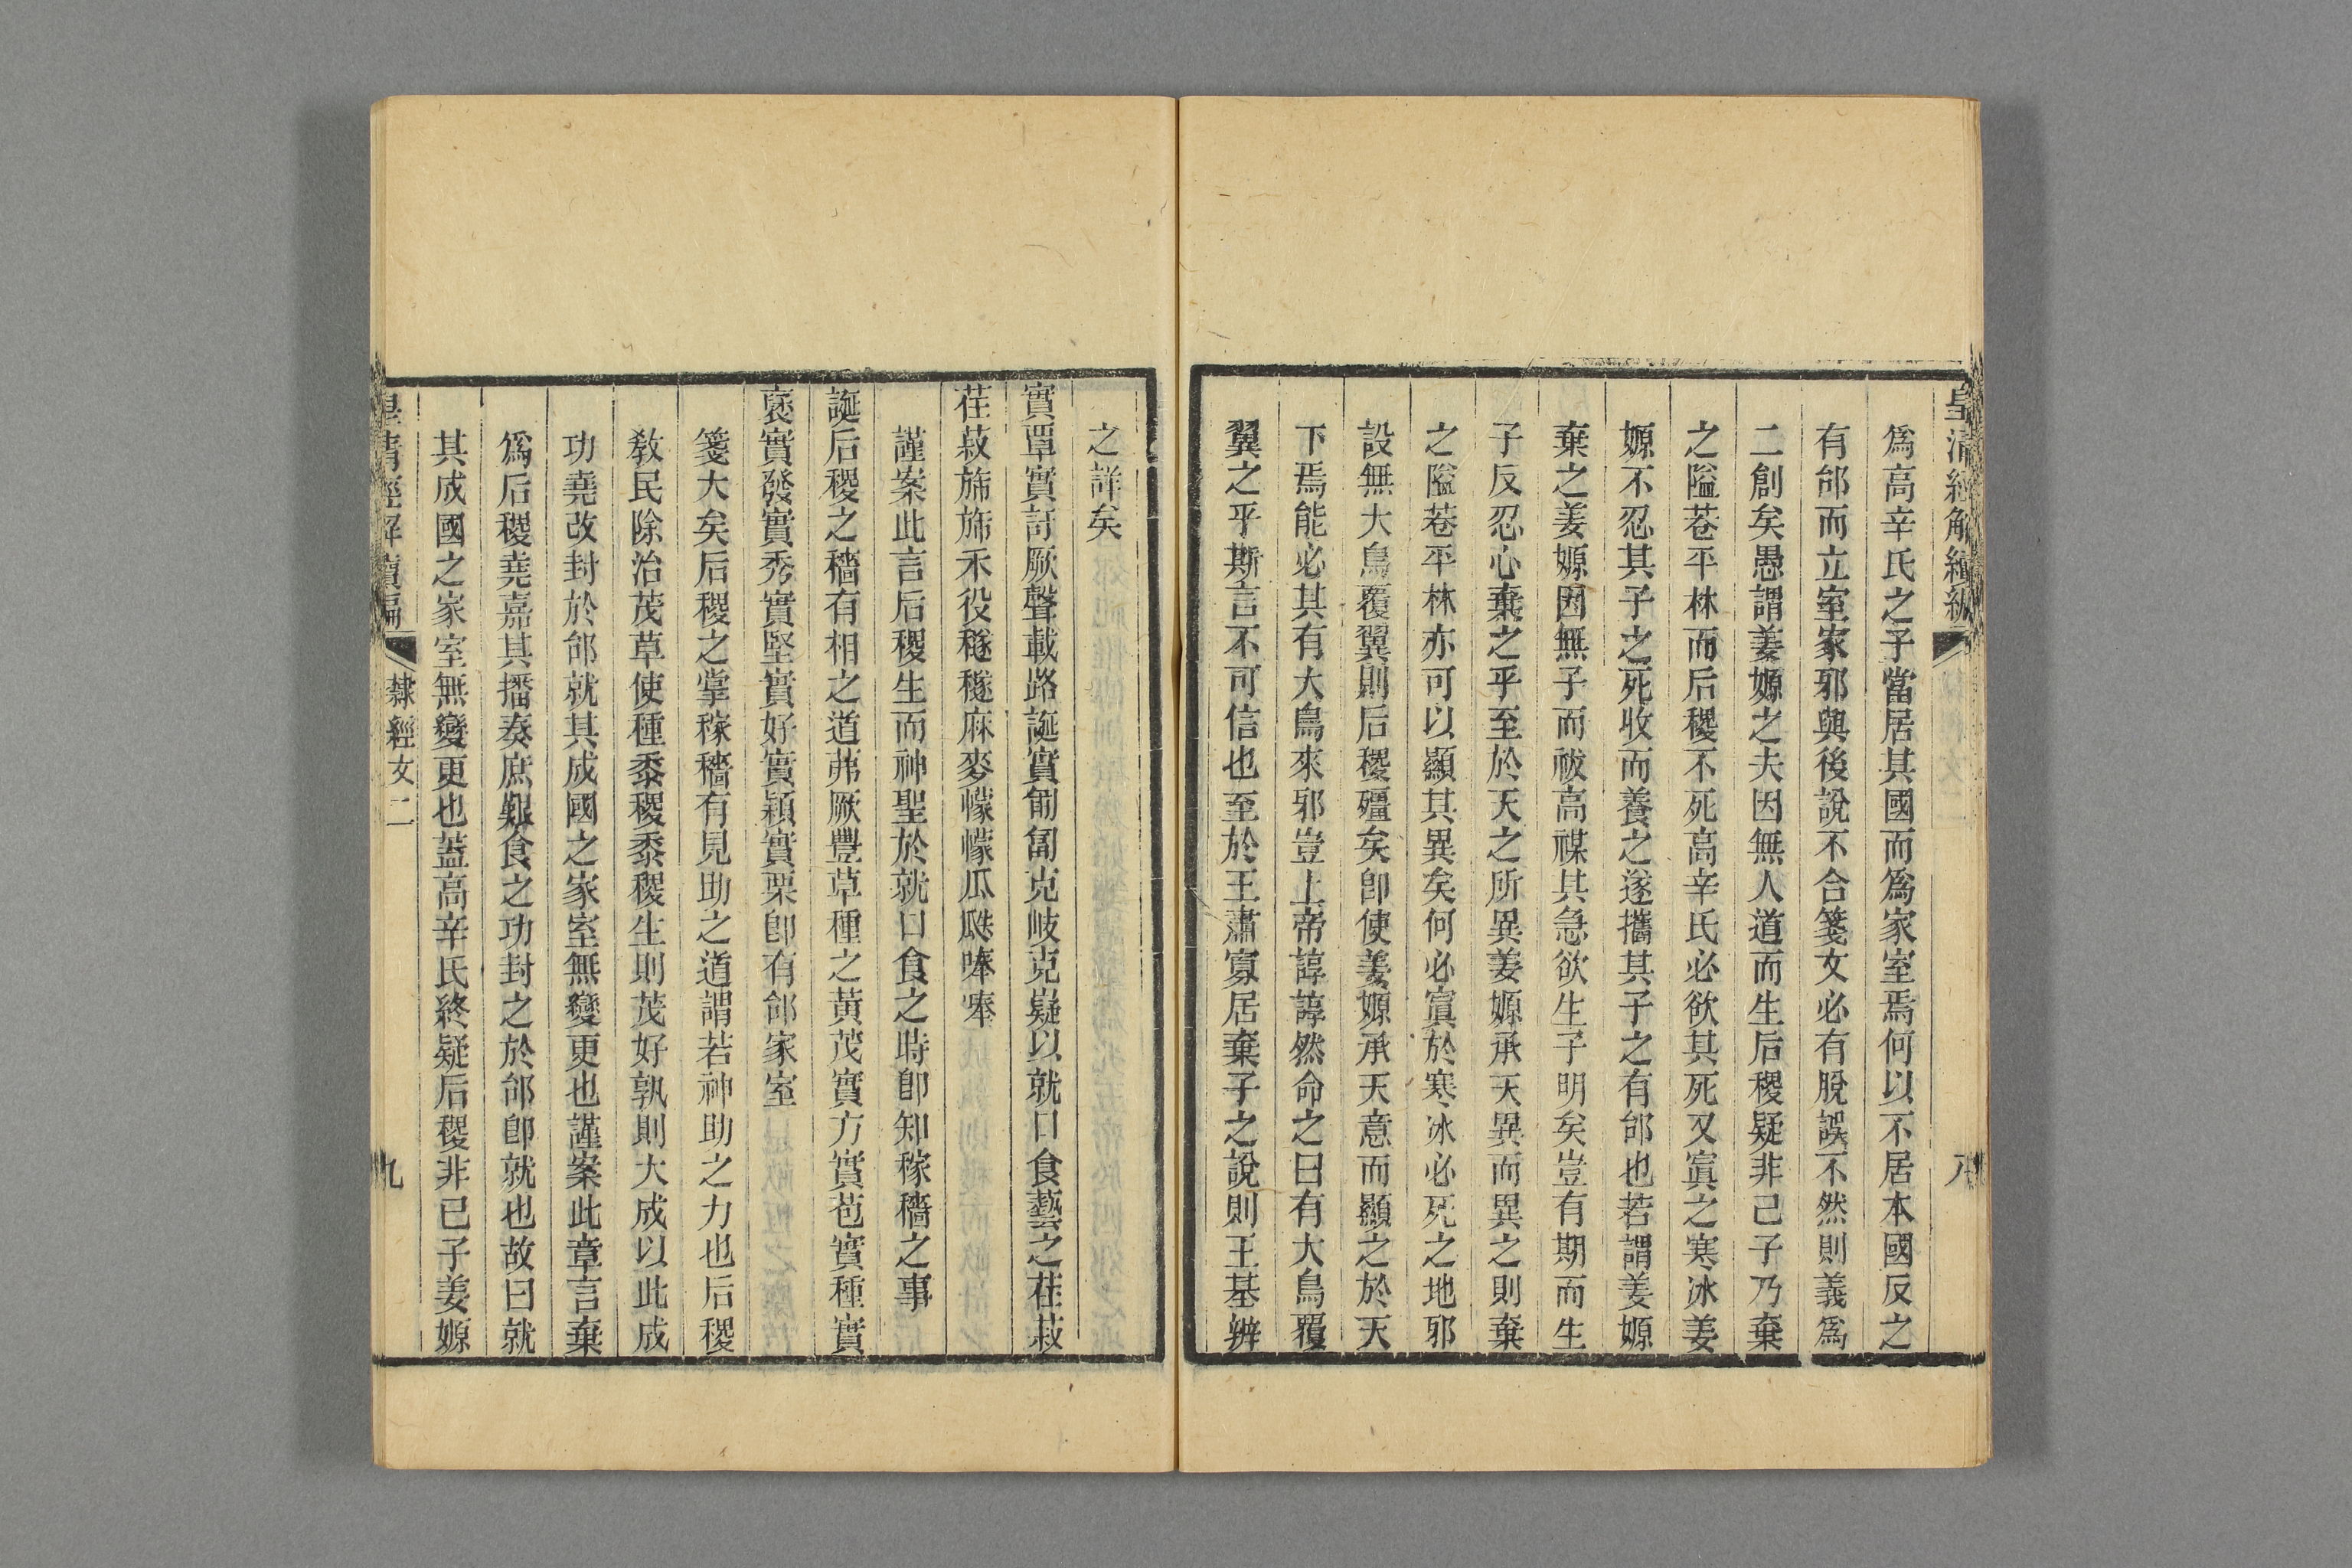 皇清經解續編
八
爲高辛氏之子當居其國而爲家室焉何以不居本國反之
有邰而立室家邪與後說不合箋文必有脫誤不然則義爲
二創矣愚謂姜嫄之夫因無人道而生后稷疑非己子乃棄
之隘巷平林而后稷不死高辛氏必欲其死又寘之寒冰姜
嫄不忍其子之死收而養之遂攜其子之有邰也若謂姜嫄
棄之姜嫄因無子而祓高禖其急欲生子明矣豈有期而生
子反忍心棄之乎至於天之所異姜嫄承天異而異之則棄
之隘巷平林亦可以顯其異矣何必寘於寒冰必死之地邪
設無大鳥覆翼則后稷殭矣卽使姜嫄承天意而顯之於天
下焉能必其有大鳥來邪豈上帝諄諄然命之曰有大鳥覆
翼之乎斯言不可信也至於王肅寡居棄子之說則王基辨
之詳矣
實覃實訏厥聲載路誕實匍匐克岐克嶷以就口食蓺之荏菽
荏菽斾斾禾役穟穟麻麥幪幪瓜瓞唪唪
謹案此言后稷生而神聖於就口食之時卽知稼穡之事
誕后稷之穡有相之道茀厥豐草種之黃茂實方實苞實種實
褎實發實秀實堅實好實穎實栗卽有邰家室
箋大矣后稷之掌稼穡有見助之道謂若神助之力也后稷
敎民除治茂草使種黍稷黍稷生則茂好孰則大成以此成
功堯改封於邰就其成國之家室無變更也謹案此章言棄
爲后稷堯嘉其播奏庶艱食之功封之於邰卽就也故曰就
其成國之家室無變更也蓋高辛氏終疑后稷非已子姜嫄
皇清經解續編
隸經文二
九